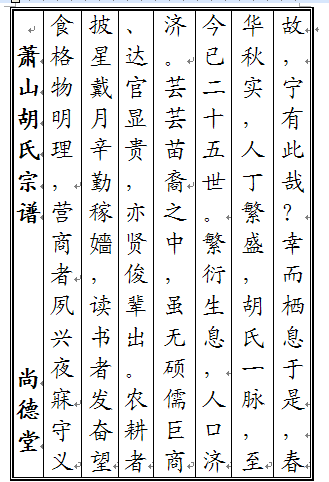 故，宁有此哉？幸而栖息于是，春
华秋实，人丁繁盛，胡氏一脉，至
今已二十五世。繁衍生息，人口济
济。芸芸苗裔之中，虽无硕儒巨商
、达官显贵，亦贤俊辈出。农耕者
披星戴月辛勤稼嬙，读书者发奋望
食格物明理，营商者夙兴夜寐守义
萧山胡氏宗谱
尚德堂